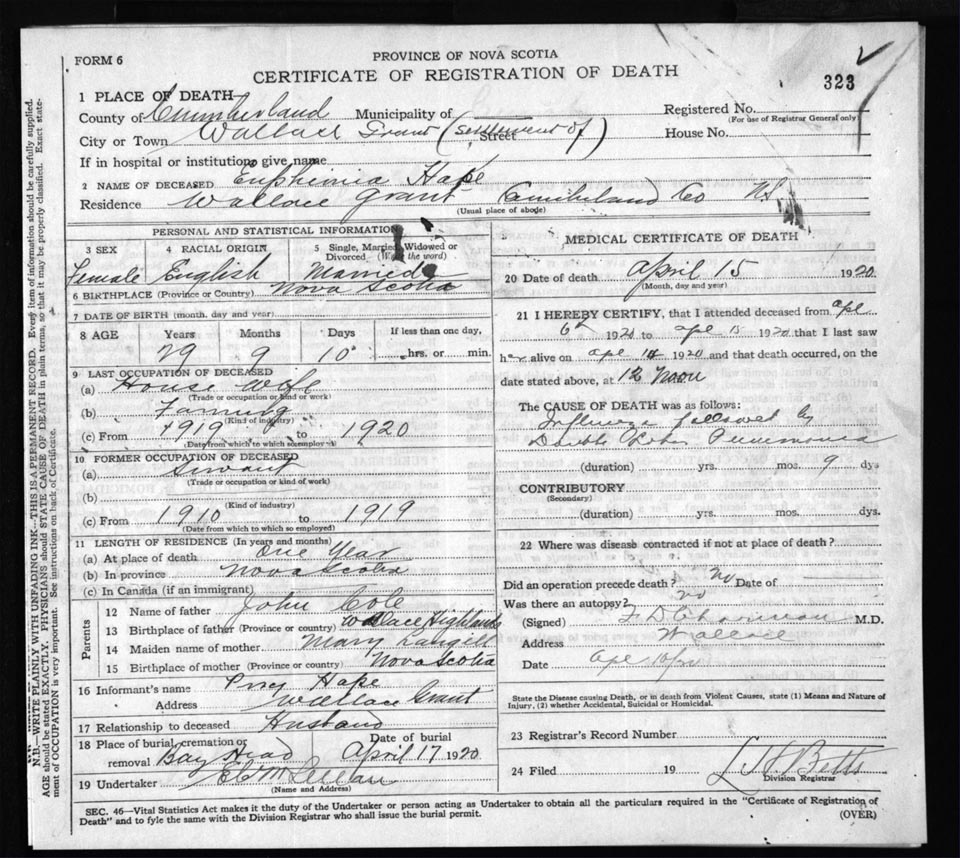 FORM 6
PROVINCE OF NOVA SCOTIA
CERTIFICATE OF REGISTRATION OF DEATH
323
1 PLACE OF DEATH
County of Cumberland Municipality of
Registered No.
(For use of Registrar General only)
City or Town Wallace Grant (Settlement of) Street
House No.
If in hospital or institution give name
2 NAME OF DECEASED Euphemia Hape
Residence Wallace Grant Cumberland Co NS
(Usual place of abode)
PERSONAL AND STATISTICAL INFORMATION
3 SEX 4 RACIAL ORIGIN 5 Single, Married, Widowed or Divorced (Write the word)
Female English Married
6 BIRTHPLACE (Province or Country) Nova Scotia
7 DATE OF BIRTH (month, day and year)
8 AGE Years Months Days If less than one day,
29 9 10 hrs. or min.
9 LAST OCCUPATION OF DECEASED
(a) House Wife
(Trade or occupation or kind of work)
(b) Farming
(Kind of industry)
(c) From 1919 to 1920
(Date from which to which so employed)
10 FORMER OCCUPATION OF DECEASED
(a) Servant
(Trade or occupation or kind of work)
(b)
(Kind of industry)
(c) From 1910 to 1919
(Date from which to which so employed)
11 LENGTH OF RESIDENCE (In years and months)
(a) At place of death One Year
(b) In province Nova Scotia
(c) In Canada (if an immigrant)
Parents
12 Name of father John Cole
13 Birthplace of father (Province or country) Wallace Highlands
14 Maiden name of mother Mary Langill
15 Birthplace of mother (Province or country) Nova Scotia
16 Informant's name Hape
Address Wallace Grant
17 Relationship to deceased Husband
18 Place of burial, cremation or removal Bay Head
Date of burial April 17 1920
19 Undertaker
(Name and Address)
MEDICAL CERTIFICATE OF DEATH
20 Date of death April 15 1920
(Month, day and year)
21 I HEREBY CERTIFY, that I attended deceased from Ape
6th 1920 to ape 15 1920 that I last saw
her alive on ape 14 1920 and that death occurred, on the
date stated above, at 12 Noon
The CAUSE OF DEATH was as follows:
Influenza followed by
Double Lobar Pneumonia
(duration) yrs. mos. 9 dys
CONTRIBUTORY
(Secondary)
(duration) yrs. mos. dys.
22 Where was disease contracted if not at place of death?
Did an operation precede death? no Date of
Was there an autopsy? no
(Signed) M.D.
Address Wallace
Date
State the Disease causing Death, or in death from Violent Causes, state (1) Means and Nature of
Injury, (2) whether Accidental, Suicidal or Homicidal.
23 Registrar's Record Number
24 Filed 19 Betts
Division Registrar
SEC. 46—Vital Statistics Act makes it the duty of the Undertaker or person acting as Undertaker to obtain all the particulars required in the "Certificate of Registration of
Death" and to fyle the same with the Division Registrar who shall issue the burial permit. (OVER)
N.B.—WRITE PLAINLY WITH UNFADING INK—THIS IS A PERMANENT RECORD. Every item of information should be carefully supplied.
AGE should be stated EXACTLY. PHYSICIANS should STATE CAUSE OF DEATH in plain terms, so that it may be properly classified. Exact state-
ment of OCCUPATION is very important. See instructions on back of Certificate.